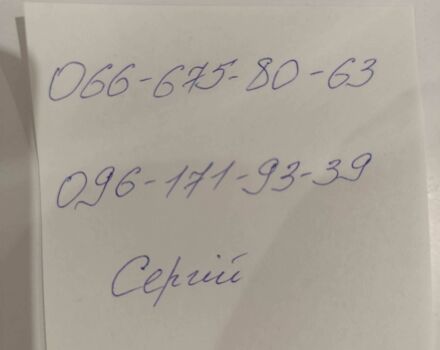 066-675-80-63
096-171-93-39
Сергій